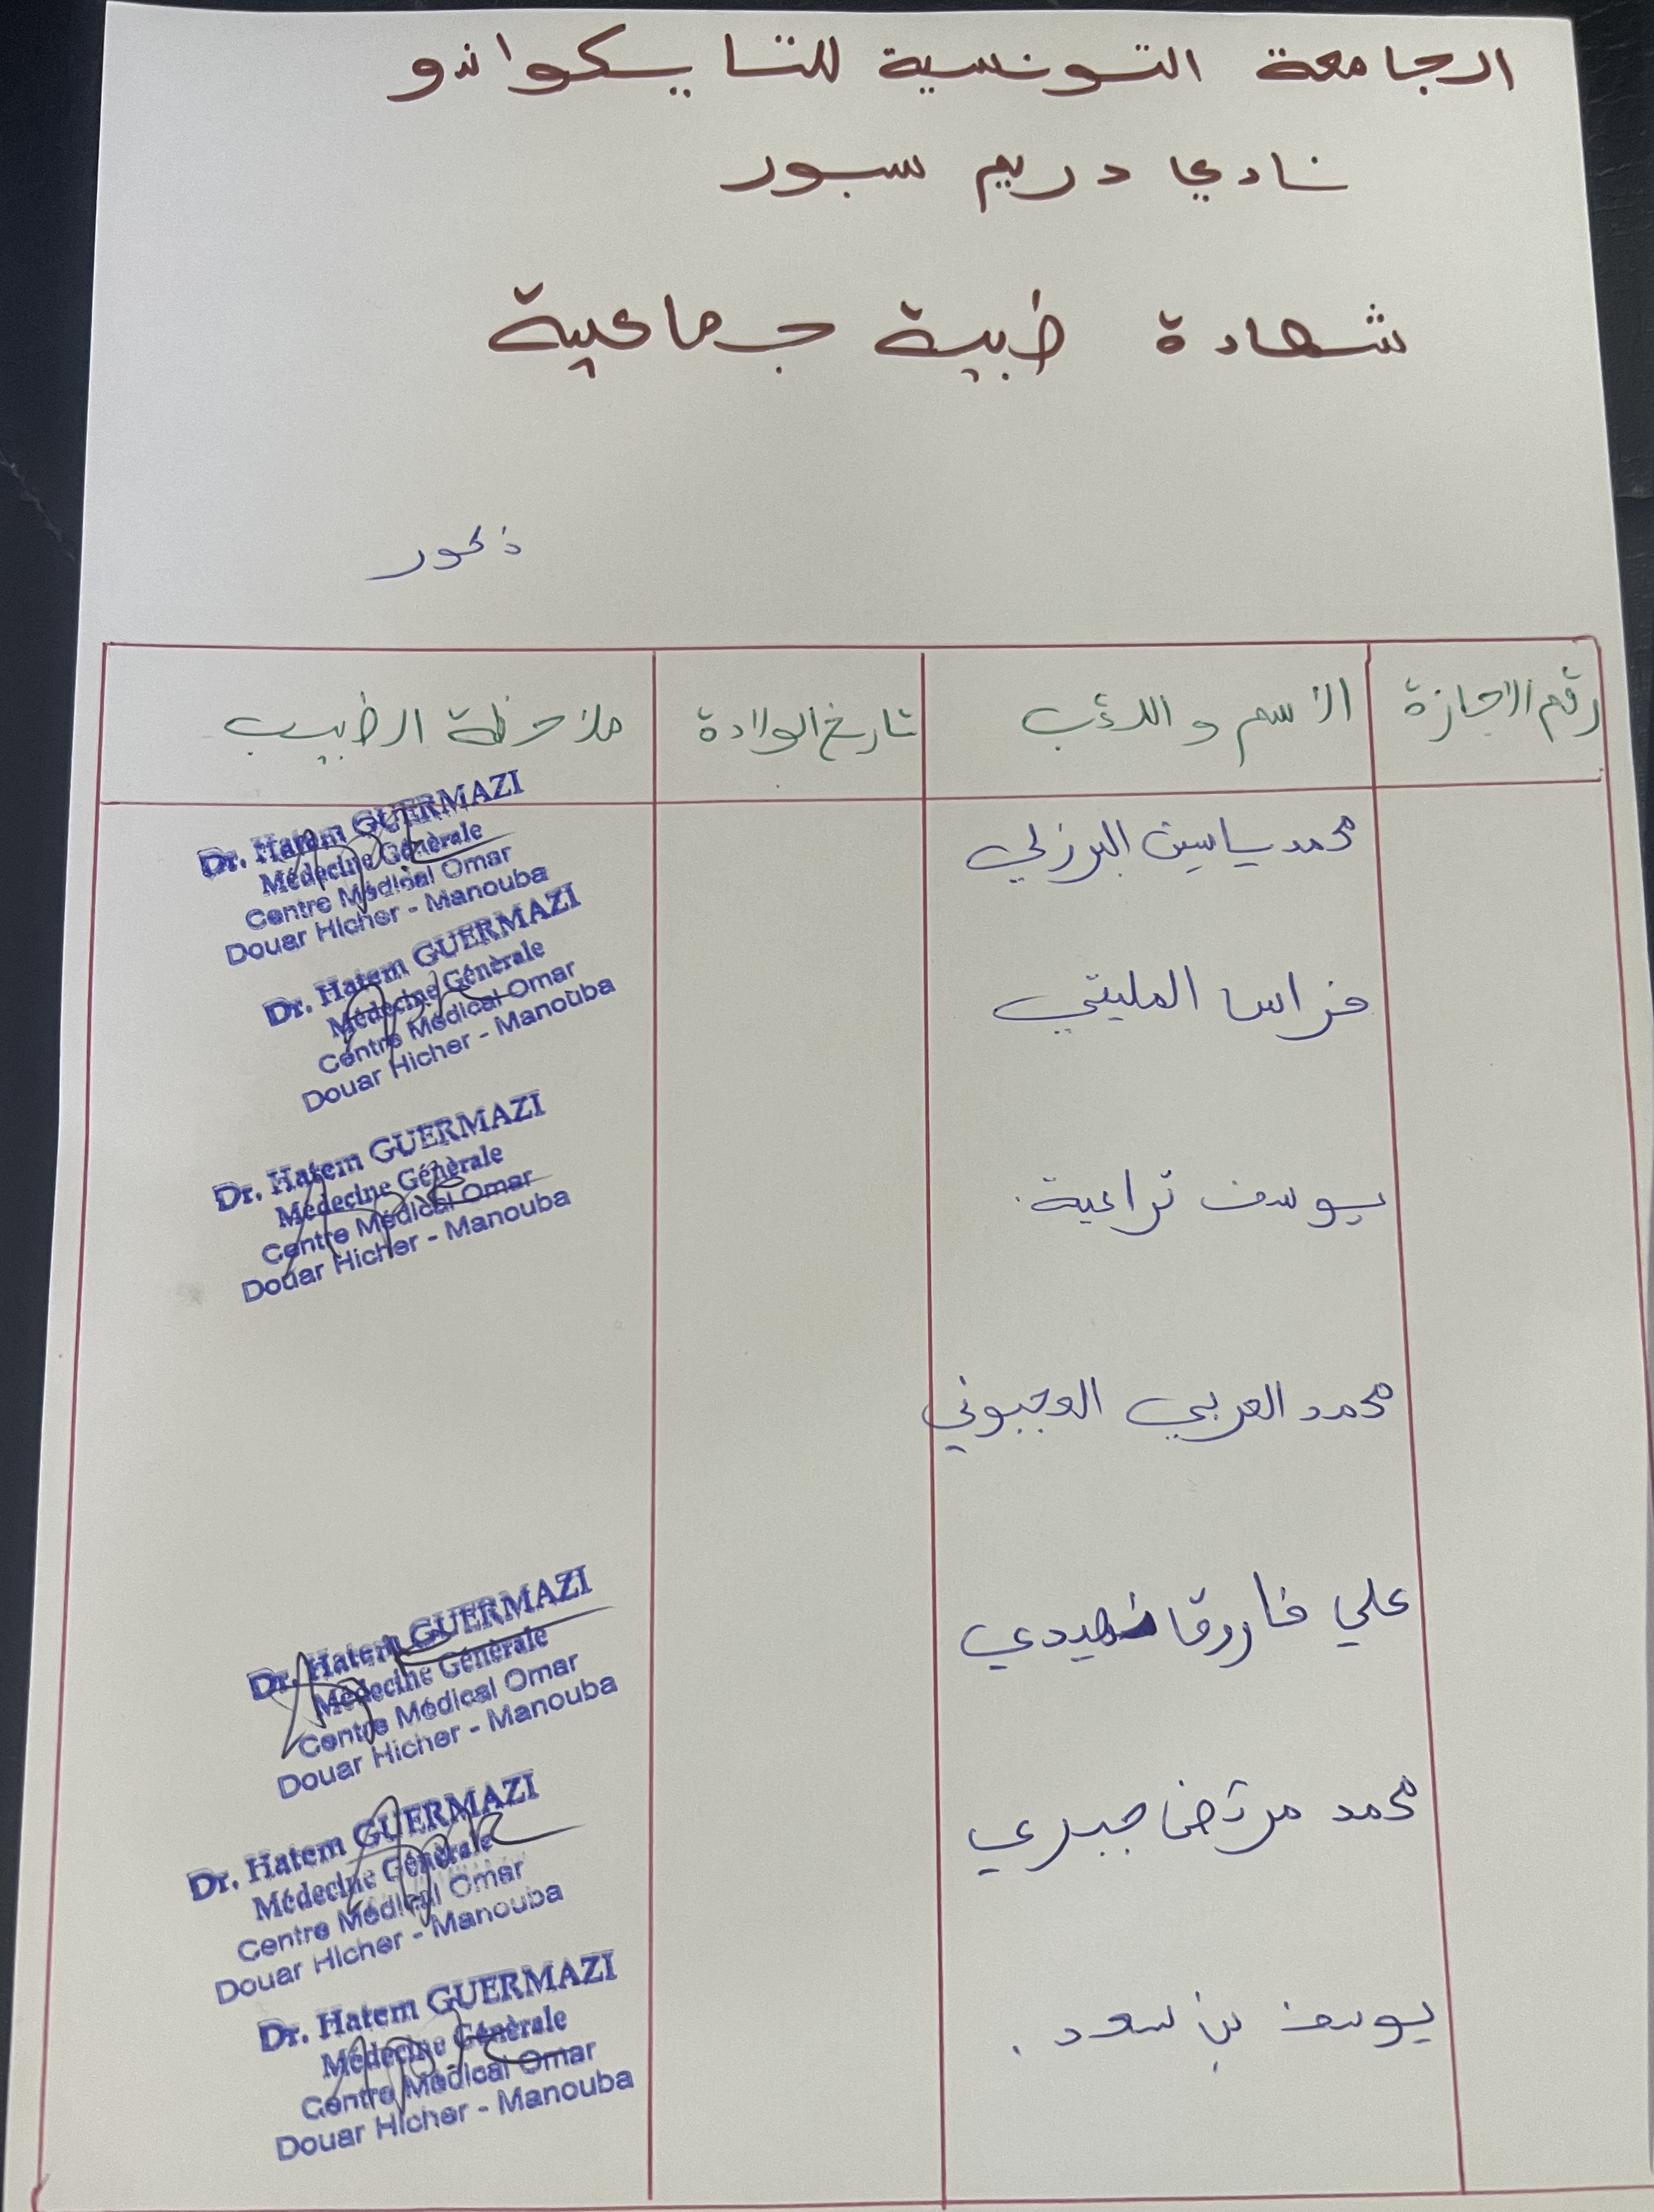 الجامعة التونسية للتايكواندو
نادي دريم سبور
شهادة طبية جماعية
ذكور
رقم الاجازة الاسم و اللقب تاريخ الولادة ملاحظة الطبيب
محمد ياسين البرزلي
Dr. Hatem GUERMAZI
Médecine Générale
Centre Médical Omar
Douar Hicher - Manouba
فراس المليتي
Dr. Hatem GUERMAZI
Médecine Générale
Centre Médical Omar
Douar Hicher - Manouba
يوسف تراعية.
Dr. Hatem GUERMAZI
Médecine Générale
Centre Médical Omar
Douar Hicher - Manouba
محمد العربي
علي فاروق
Dr. Hatem GUERMAZI
Médecine Générale
Centre Médical Omar
Douar Hicher - Manouba
محمد مرتضى جبري
Dr. Hatem GUERMAZI
Médecine Générale
Centre Médical Omar
Douar Hicher - Manouba
يوسف بن سعد.
Dr. Hatem GUERMAZI
Médecine Générale
Centre Médical Omar
Douar Hicher - Manouba